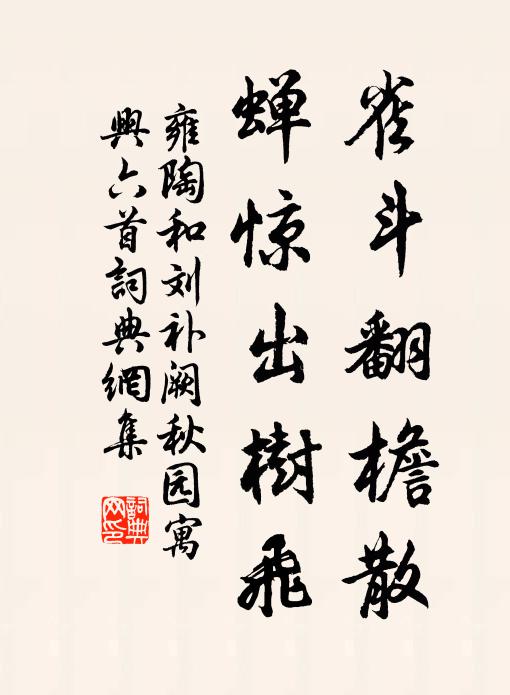 雀斗翻檐散
蝉惊出樹飛
雍陶和刘补阙秋园寓
興六首詞典網集
詞典
网印